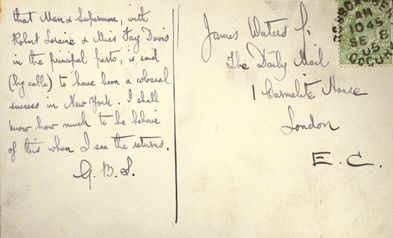 that Man & Superman, with
Robert Loraine & Miss Fay Davis
in the principal parts, is said
(by cable) to have been a colossal
success in New York. I shall
know how much to believe
of this when I see the returns.
G. B. S.
James Waters
The Daily Mail
1 Carmelite House
London
E. C.
1045
SE 8
05